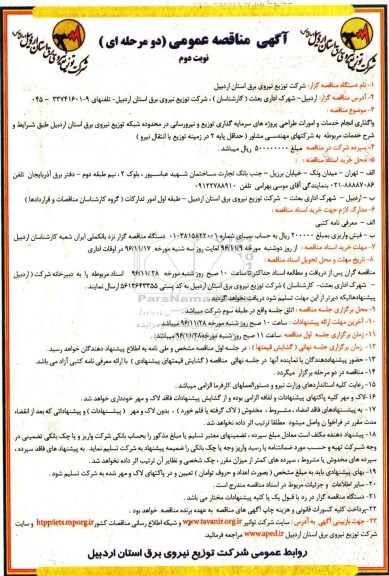 آگهی مناقصه عمومی (دو مرحله ای)
نوبت دوم
شرکت توزیع نیروی برق استان اردبیل
۱- نام دستگاه مناقصه گزار: شرکت توزیع نیروی برق استان اردبیل
۲- آدرس مناقصه گزار: اردبیل- شهرک اداری بعثت (کارشناسان)، شرکت توزیع نیروی برق استان اردبیل- تلفنهای ۹-۳۳۷۴۱۶۰۱ - ۰۴۵
۳- موضوع مناقصه:
واگذاری انجام خدمات و امورات طراحی پروژه های سرمایه گذاری توزیع و نیرورسانی در محدوده شبکه توزیع نیروی برق استان اردبیل طبق شرایط و
شرح خدمات مربوطه به شرکتهای مهندسی مشاور (حداقل پایه ۲ در زمینه توزیع یا انتقال نیرو)
۴- سپرده شرکت در مناقصه مبلغ ریال میباشد.
۵- محل خرید اسناد مناقصه:
الف - تهران - میدان ونک - خیابان برزیل - جنب بانک تجارت ساختمان شهید عباسپور، بلوک ۲، نیم طبقه دوم - دفتر برق آذربایجان تلفن
۰۲۱-۸۸۸۸۷۰۸۶ بنمایندگی آقای موسی بهرامی تلفن ۰۹۱۲۲۷۸۸۹۱۰
ب - اردبیل - شهرک اداری بعثت - شرکت توزیع نیروی برق استان اردبیل - طبقه اول امور تدارکات (گروه کارشناسان مناقصات و قراردادها)
۶- مدارک لازم جهت خرید اسناد مناقصه:
الف - معرفی نامه کتبی
ب - فیش واریزی بمبلغ ریال به حساب سیبای شماره دستگاه مناقصه گزار نزد بانک ملی ایران شعبه کارشناسان اردبیل
۷- مهلت خرید اسناد مناقصه: از روز دوشنبه مورخه ۹۶/۱۱/۹ لغایت روز سه شنبه مورخه ۹۶/۱۱/۱۷ در اوقات اداری
۸- تاریخ مهلت و محل تحویل اسناد مناقصه:
مناقصه گران پس از دریافت و مطالعه اسناد حداکثر تا ساعت ۱۰ صبح روز شنبه مورخه ۹۶/۱۱/۲۸ اسناد مربوطه را به دبیرخانه شرکت (اردبیل
- شهرک اداری بعثت- کارشناسان) شرکت توزیع نیروی برق استان اردبیل به کد پستی ۵۶۱۳۶۴۳۳۵۵ ارسال نمایند.
پیشنهادهائیکه دیرتر از این مهلت تسلیم شود دریافت نخواهد گردید.
۹- محل برگزاری جلسه مناقصه: اتاق جلسه واقع در طبقه سوم شرکت میباشد.
۱۰- آخرین مهلت ارائه پیشنهادات: ساعت ۱۰ صبح روز شنبه مورخه ۹۶/۱۱/۲۸ میباشد.
۱۱- زمان برگزاری جلسه اول مناقصه: ساعت ۱۱ صبح روز شنبه مورخه ۹۶/۱۱/۲۸ میباشد.
۱۲- زمان برگزاری جلسه نهائی (گشایش قیمتها): در جلسه اول مناقصه مشخص و طی نامه به اطلاع پیشنهاد دهندگان خواهد رسید.
۱۳- حضور پیشنهاددهندگان یا نماینده آنها در جلسه نهائی مناقصه (گشایش قیمتهای پیشنهادی) با ارائه معرفی نامه کتبی آزاد می باشد.
۱۴- مناقصه در دو مرحله برگزار میگردد.
۱۵- رعایت کلیه استانداردهای وزارت نیرو و دستورالعملهای کارفرما الزامی میباشد.
۱۶- لاک و مهر کلیه پاکتهای پیشنهادات و لفافه الزامی بوده و از گشایش پیشنهادات فاقد لاک و مهر خودداری خواهد شد.
۱۷- به پیشنهادهای فاقد امضاء، مشروط، مخدوش (لاک گرفته یا قلم خورده)، بدون لاک و مهر (پیشنهادات) و پیشنهاداتی که بعد از انقضاء
مدت مقرر در فراخوان واصل میشود مطلقا ترتیب اثر داده نخواهد شد.
۱۸- پیشنهاد دهنده مکلف است معادل مبلغ سپرده، تضمینهای معتبر تسلیم یا مبلغ مذکور را بحساب بانکی شرکت واریز و یا چک بانکی تضمینی در
وجه شرکت تهیه و حسب مورد ضمانتنامه یا رسید واریز وجه یا چک بانکی را ضمیمه پیشنهاد به شرکت تسلیم نماید. به پیشنهاد های فاقد سپرده،
سپرده های مخدوش یا مشروط، سپرده های کمتر از میزان مقرر، چک شخصی و نظایر آن ترتیب اثر داده نخواهد شد.
۱۹- بهای پیشنهادی باید به مبلغ مشخص (بصورت اعداد و حروف توامان) تعیین و در پاکتهای لاک و مهر شده به شرکت تسلیم شود.
۲۰- سایر اطلاعات و جزئیات مربوط در اسناد مناقصه مندرج است.
۲۱- دستگاه مناقصه گزار در رد یا قبول یک یا کلیه پیشنهادات مختار می باشد.
۲۲- پرداخت کلیه کسورات قانونی و هزینه چاپ آگهی های مناقصه به عهده برنده مناقصه، خواهد بود.
۲۳- جهت بازبینی آگهی به آدرس: سایت شرکت توانیر www.tavanir.org.ir و شبکه اطلاع رسانی مناقصات کشور http://iets.mporg.ir و سایت
شرکت توزیع نیروی برق استان اردبیل www.aped.ir مراجعه فرمائید.
روابط عمومی شرکت توزیع نیروی برق استان اردبیل